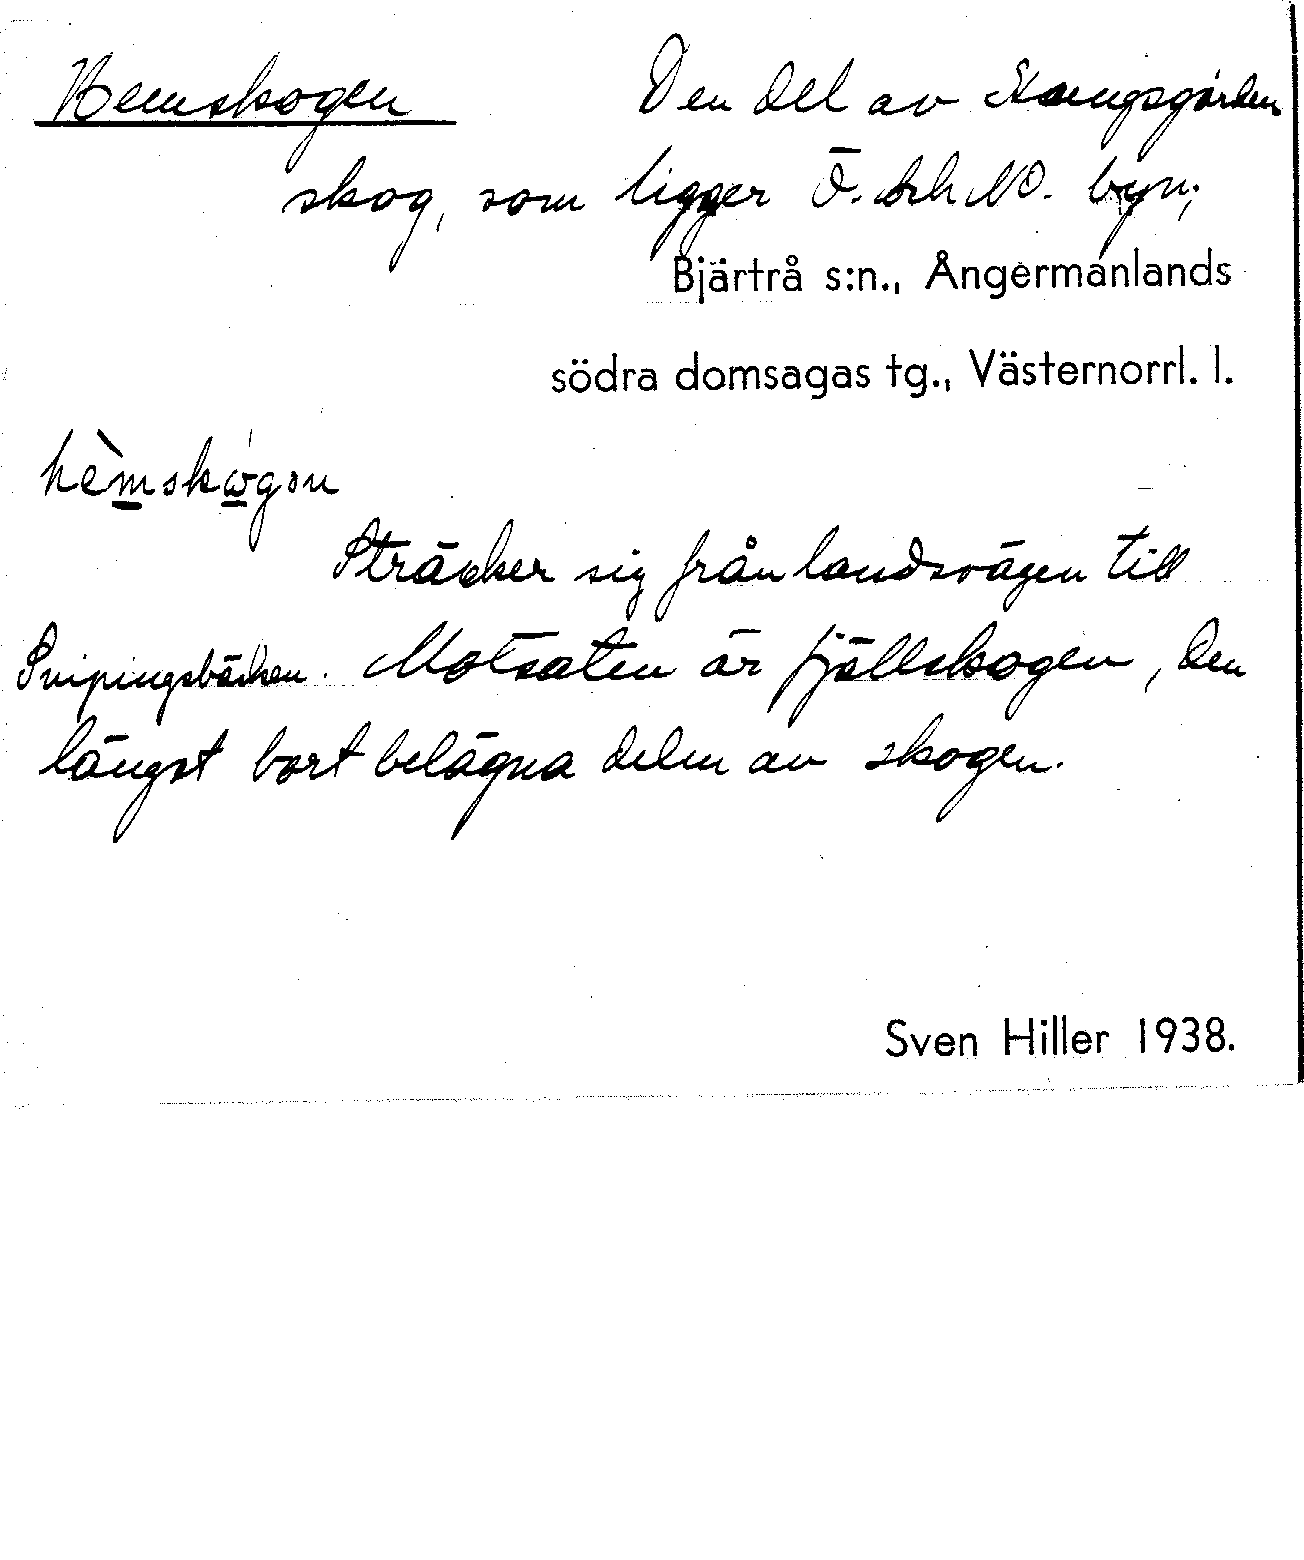 Hemskogen Den del av
skog, som ligger Ö. och NO. byn;
Bjärtrå s:n., Ångermanlands
södra domsagas tg., Västernorrl. l.
hèmskògon
Sträcker sig från landsvägen till
Snipingsbäcken. Motsaten är fjällskogen, den
längst bort belägna delen av skogen.
Sven Hiller 1938.